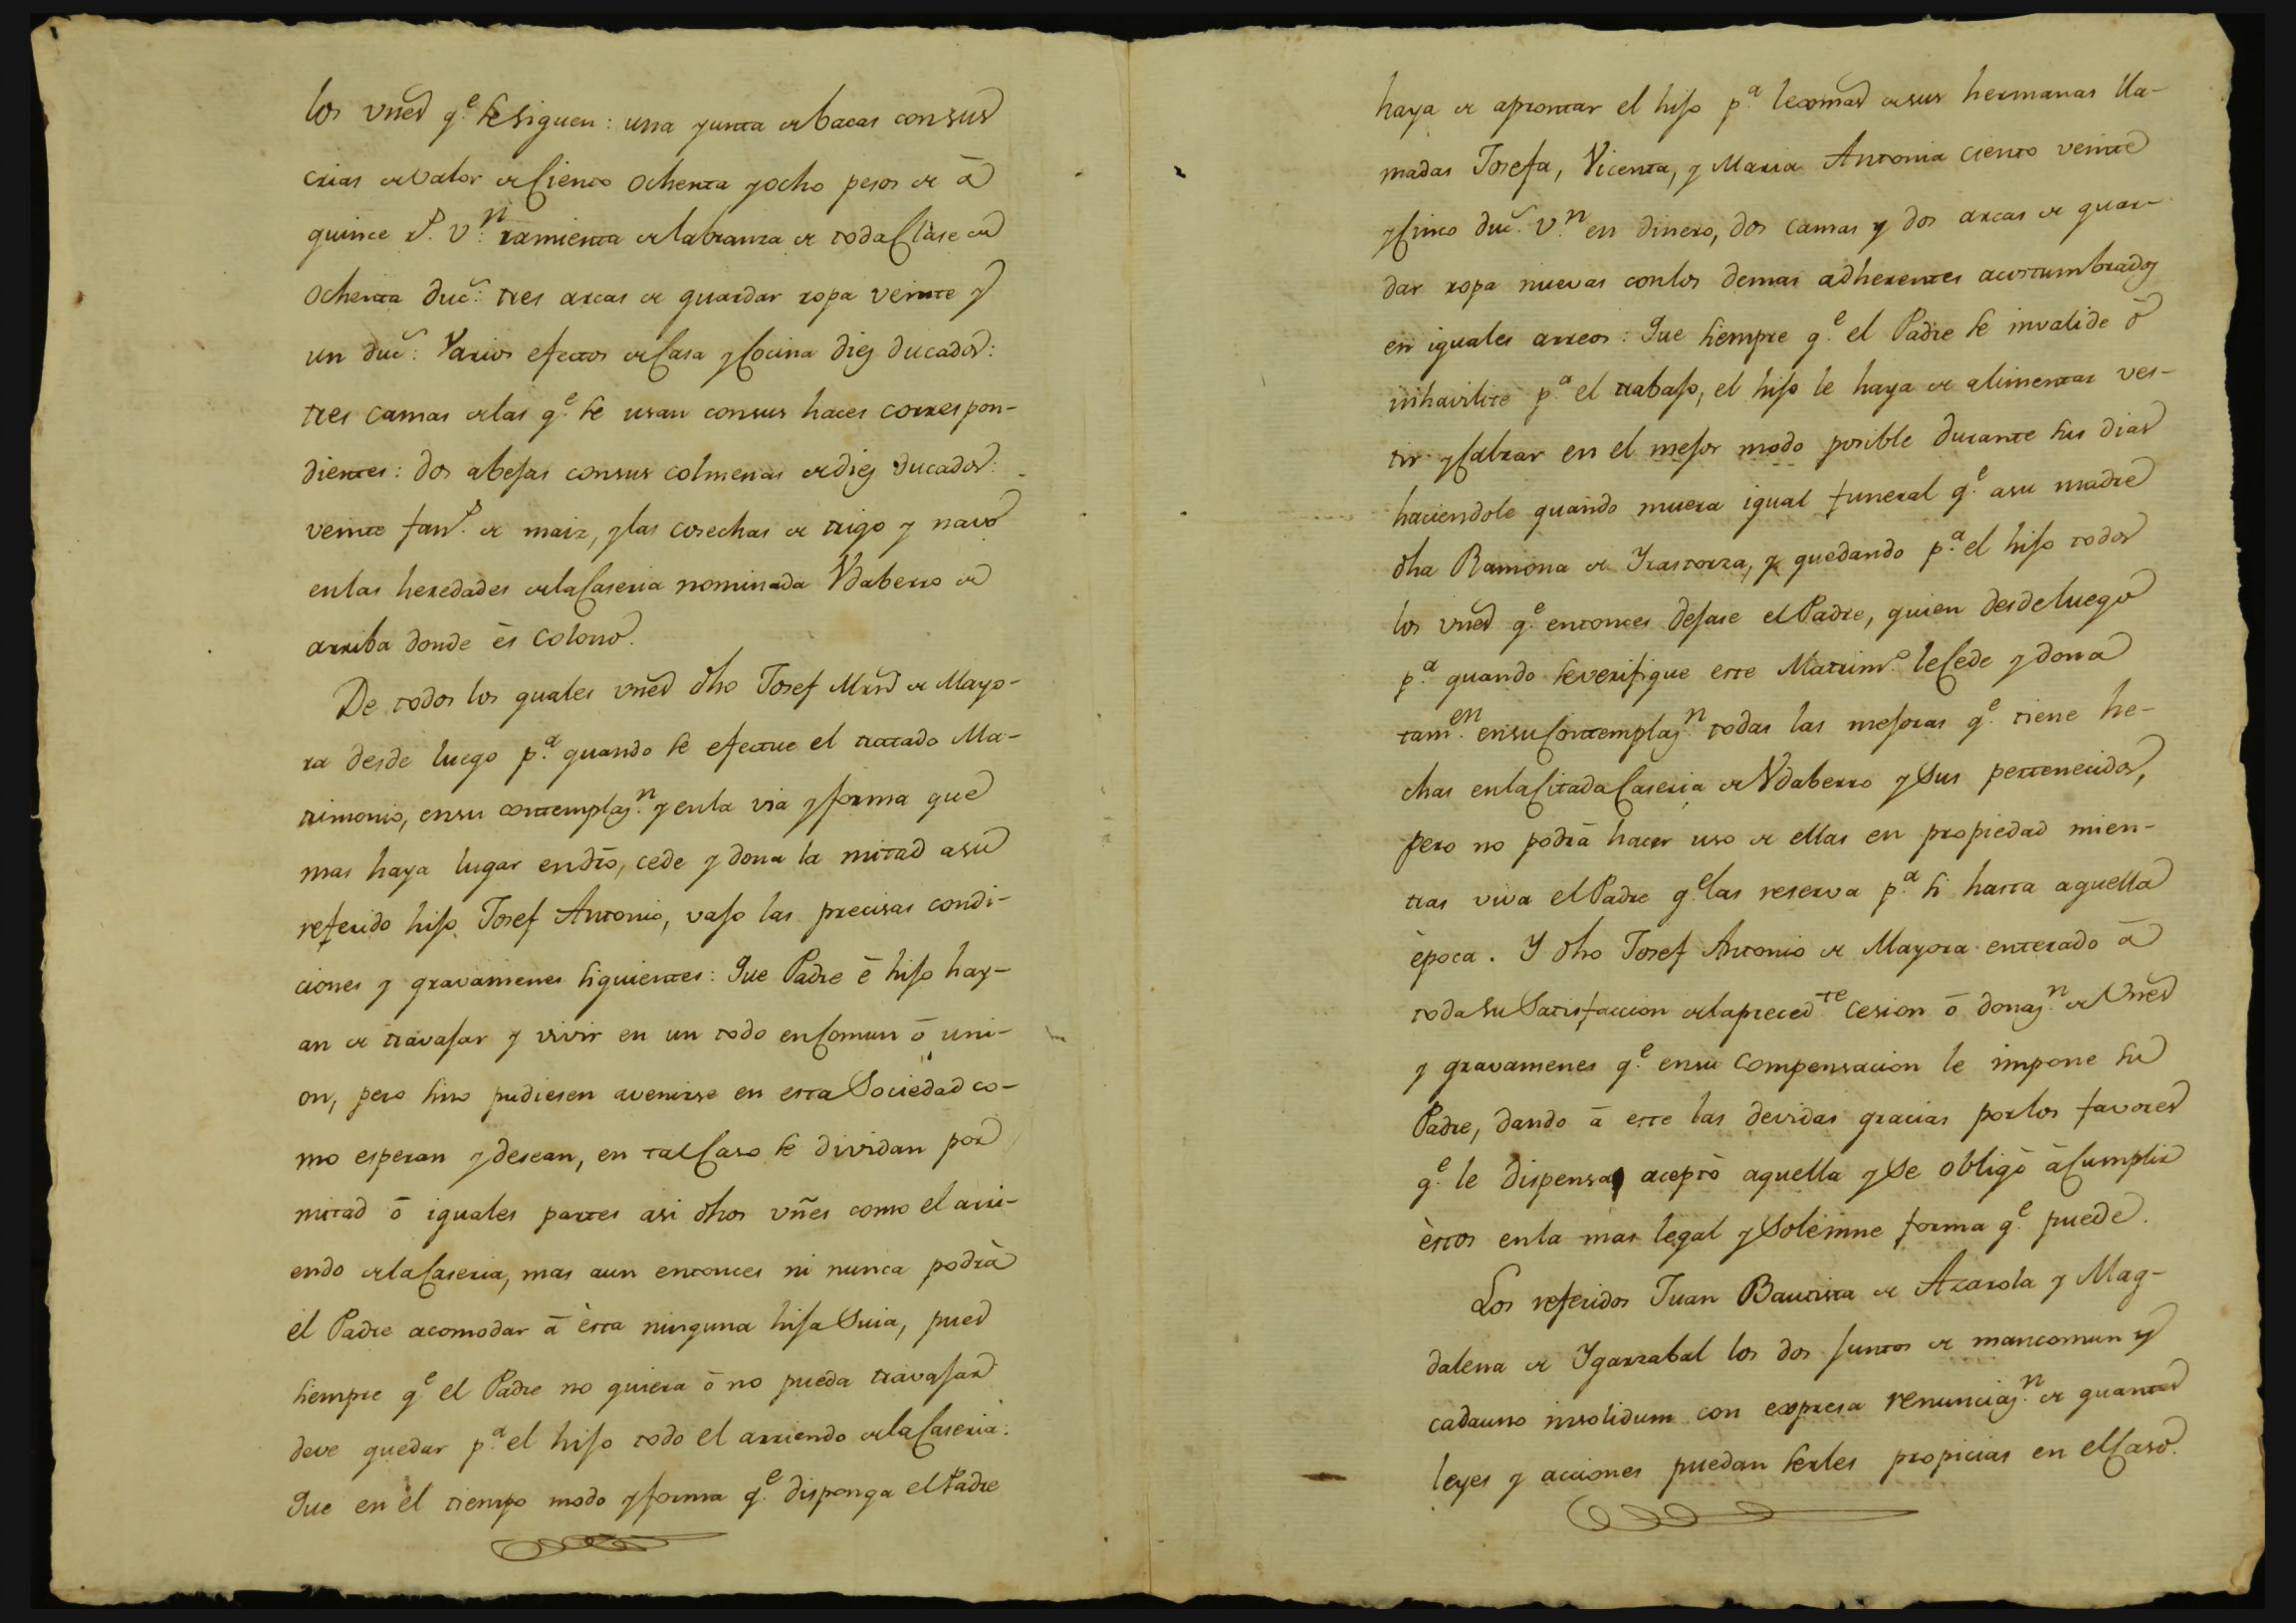 los vñes q.e se siguen: una yunta de bacas consus
crias de valor de Ciento ochenta y ocho pesos de â
quince r.s v.n ramienta de labranza de toda Clase de
ochenta duc.s: tres arcas de guardar ropa veinte y
un duc.s: Varios efectos de Casa y Cocina diez ducados:
tres camas de las q.e se usan consus haces correspon-
dientes: dos abejas consus colmenas de diez ducados:
veinte fan.s de maiz, y las cosechas de trigo y navo
enlas heredades dela Caseria nominada Vdaberro de
arriba donde ès Colono.
De todos los quales vñes dho Josef Mrñ de Mayo-
ra desde luego p.a quando se efectue el tratado Ma-
trimonio, ensu contemplaz.n y enla via y forma que
mas haya lugar endro, cede y dona la mitad asu
referido hijo Josef Antonio, vajo las precisas condi-
ciones y gravamenes siguientes: Que Padre ê hijo hay-
an de travajar y vivir en un todo enComun ô uni-
on, pero sino pudiesen avenirse en esta Sociedad co-
mo esperan y desean, en tal Caso se dividan por
mitad ô iguales partes asi dhos vñes como el arri-
endo dela Caseria, mas aun entonces ni nunca podrà
el Padre acomodar â èsta ninguna hija Suia, pues
siempre q.e el Padre no quiera ô no pueda travajar
deve quedar p.a el hijo todo el arriendo dela Caseria:
Que en el tiempo modo y forma q.e disponga el Padre
haya de aprontar el hijo p.a lexmas de sus hermanas lla-
madas Josefa, Vicenta, y Maria Antonia ciento veinte
y Cinco duc.s v.n en dinero, dos camas y dos arcas de guar-
dar ropa nuevas conlos demas adherentes acostumbrados
en iguales arreos: Que siempre q.e el Padre se invalide ô
inhavilite p.a el trabajo, el hijo le haya de alimentar ves-
tir y Calzar en el mejor modo posible durante sus dias
haciendole quando muera igual funeral q.e asu madre
dha Ramona de Yrastorza, y quedando p.a el hijo todos
los vñes q.e entonces dejare el Padre, quien desdeluego
p.a quando severifique este Matrim.o leCede y dona
tam.en ensu Contemplaz.n todas las mejoras q.e tiene he-
chas enla Citada Caseria de Vdaberro y Sus pertenecidos,
pero no podrâ hacer uso de ellas en propiedad mien-
tras viva el Padre q.e las reserva p.a si hasta aquella
època. Y dho Josef Antonio de Mayora enterado â
toda su Satisfaccion dela preced.te cesion ô donaz.n de vñes
y gravamenes q.e ensu compensacion le impone su
Padre, dando â este las devidas gracias porlos favores
q.e le dispensa, aceptò aquella y Se obligò âCumplir
èstos enla mas legal y Solemne forma q.e puede.
Los referidos Juan Bautista de Azarola y Mag-
dalena de Ygarzabal los dos juntos de mancomun y
cadauno insolidum con expresa renunciaz.n de quantas
leyes y acciones puedan serles propicias en el Caso.